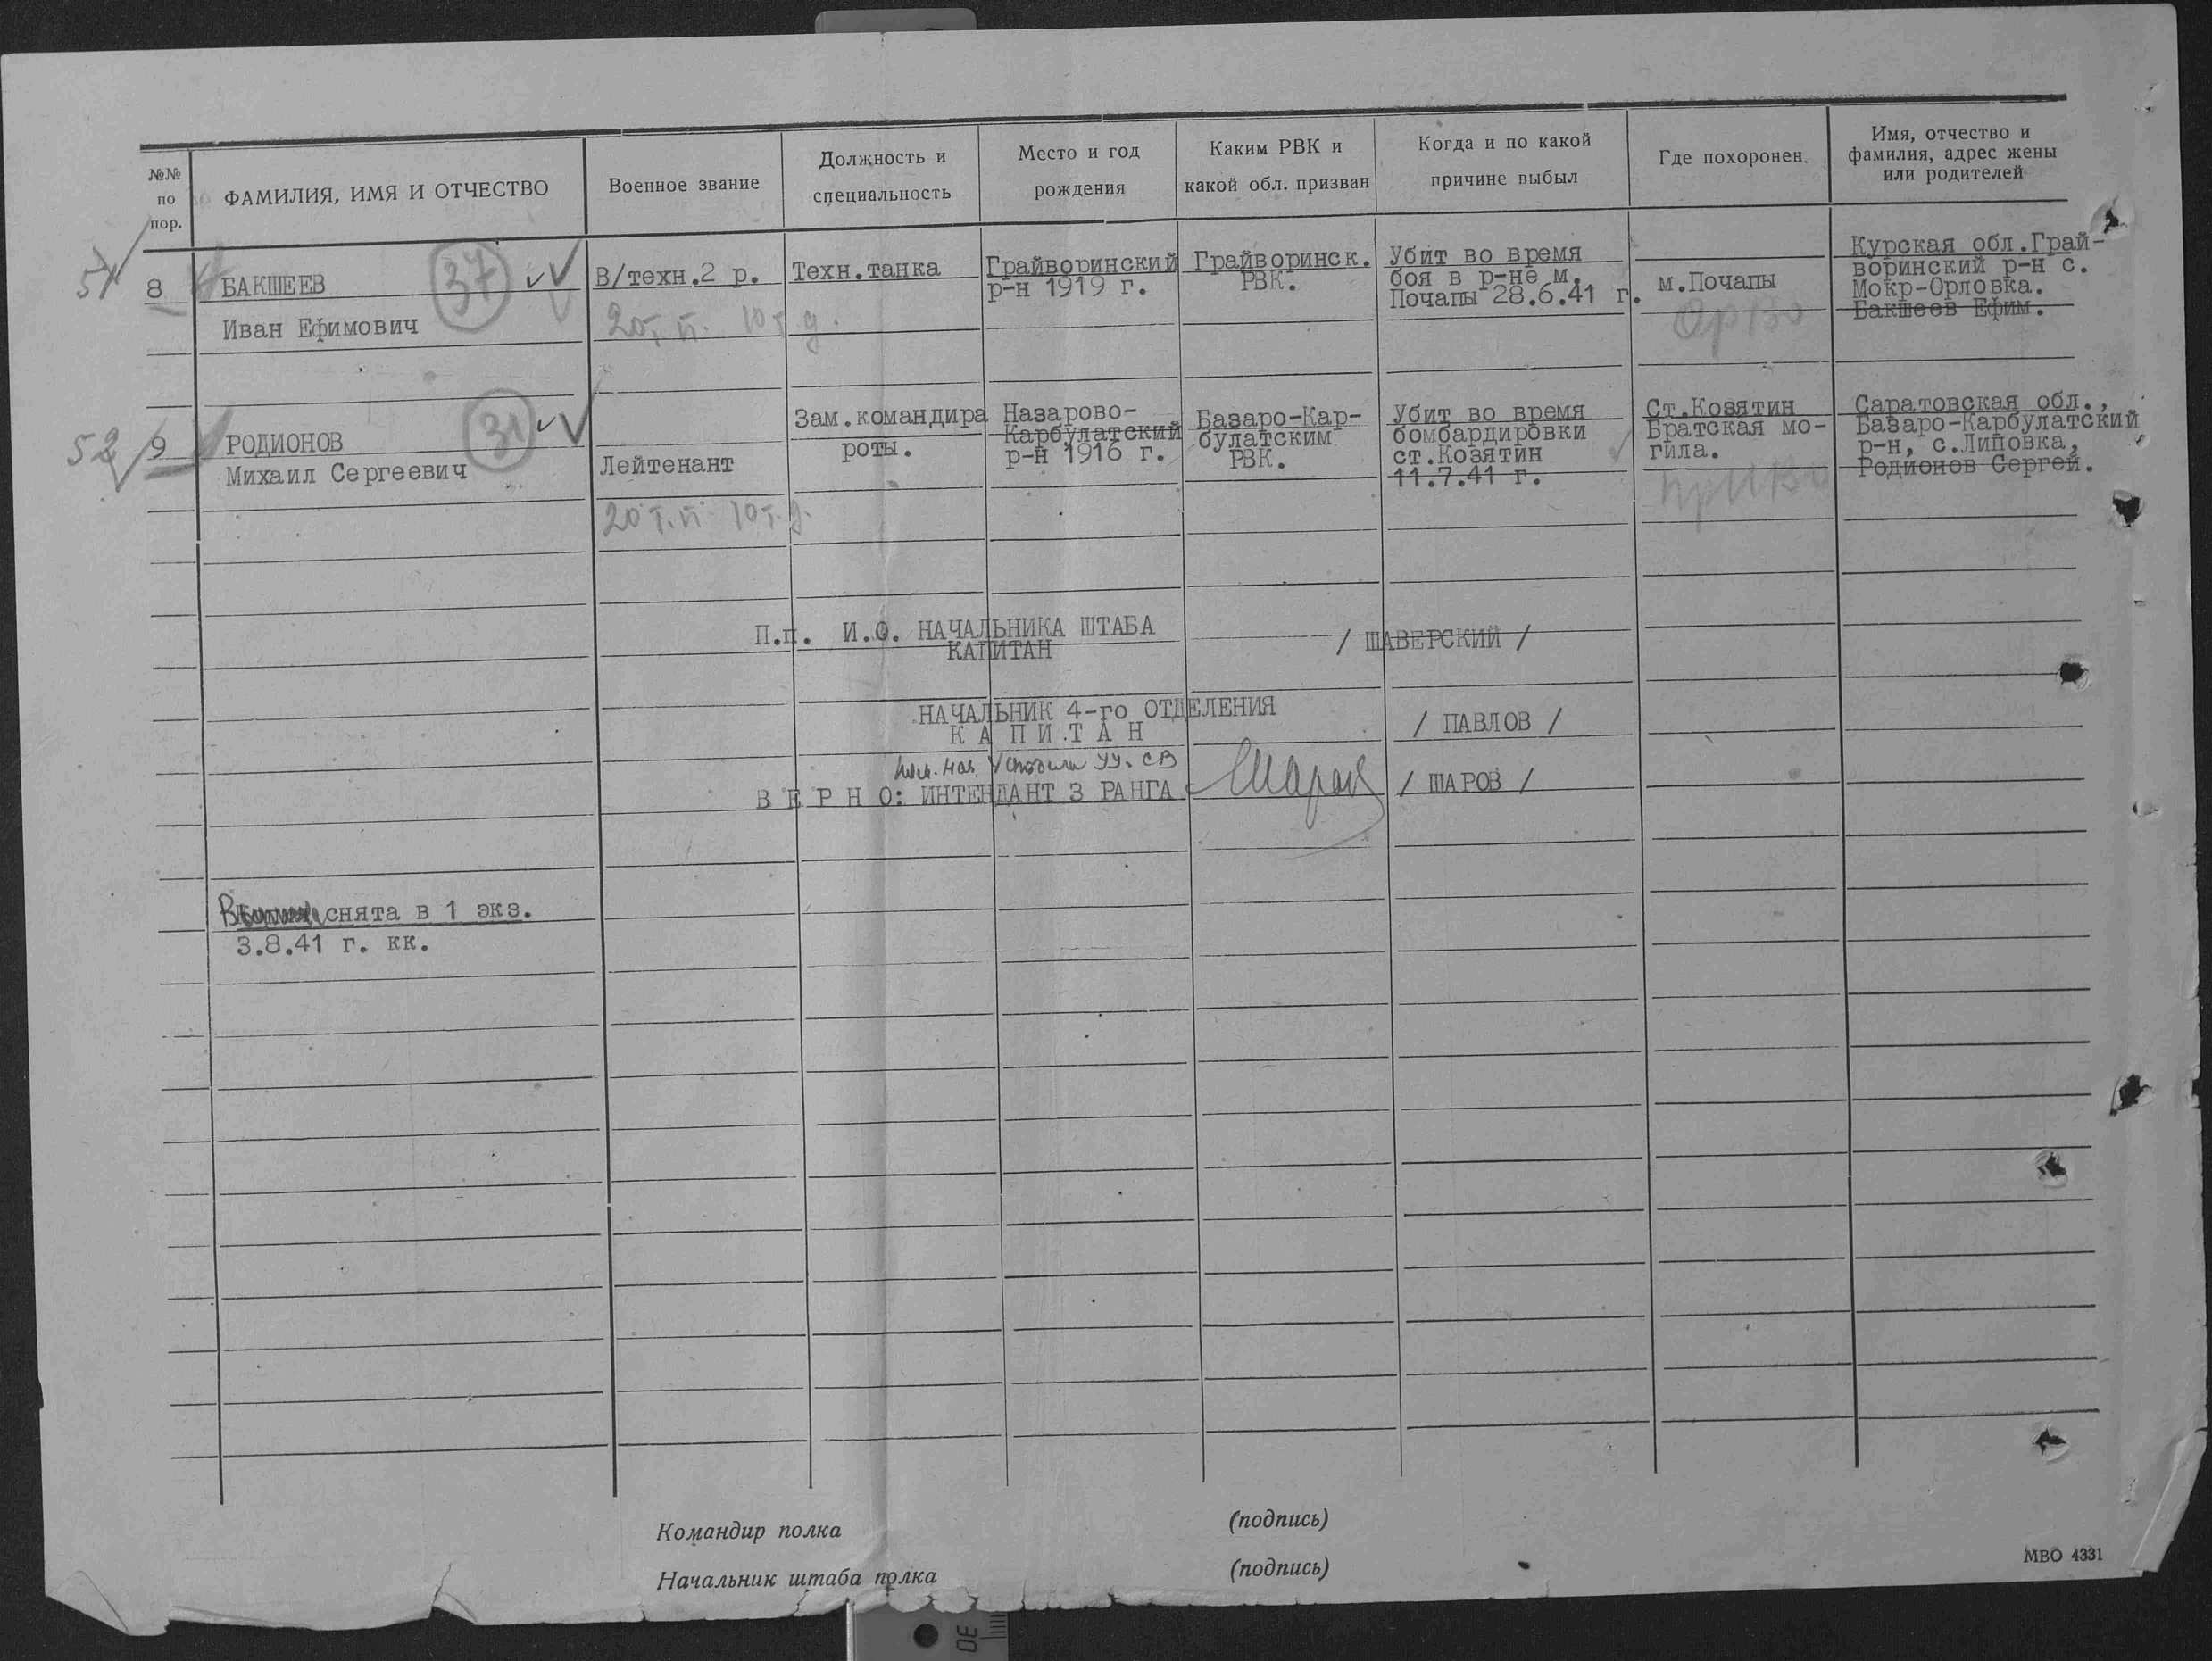 №№ по пор.
ФАМИЛИЯ, ИМЯ И ОТЧЕСТВО
Военное звание
Должность и специальность
Место и год рождения
Каким РВК и какой обл. призван
Когда и по какой причине выбыл
Где похоронен.
Имя, отчество и фамилия, адрес жены или родителей
51
8
БАКШЕЕВ
Иван Ефимович
37
В/техн.2 р.
20 т.п. 10 т.д.
Техн.танка
Грайворинский
р-н 1919 г.
Грайворинск.
РВК.
Убит во время
боя в р-не м.
Почапы 28.6.41 г.
м.Почапы
ОрВо
Курская обл.Грай-
воринский р-н с.
Мокр-Орловка.
Бакшеев Ефим.
52
9
РОДИОНОВ
Михаил Сергеевич
31
Лейтенант
20 т.п. 10 т.д.
Зам.командира
роты.
Назарово-
Карбулатский
р-н 1916 г.
Базаро-Кар-
булатским
РВК.
Убит во время
бомбардировки
ст.Козятин
11.7.41 г.
Ст.Козятин
Братская мо-
гила.
ПриВо
Саратовская обл.,
Базаро-Карбулатский
р-н, с.Липовка,
Родионов Сергей.
П.п. И.О. НАЧАЛЬНИКА ШТАБА
КАПИТАН
/ ШАВЕРСКИЙ /
НАЧАЛЬНИК 4-го ОТДЕЛЕНИЯ
К А П И Т А Н
/ ПАВЛОВ /
В Е Р Н О: ИНТЕНДАНТ 3 РАНГА
Шаров
/ ШАРОВ /
снята в 1 экз.
3.8.41 г. кк.
Командир полка
(подпись)
Начальник штаба полка
(подпись)
МВО 4331
30